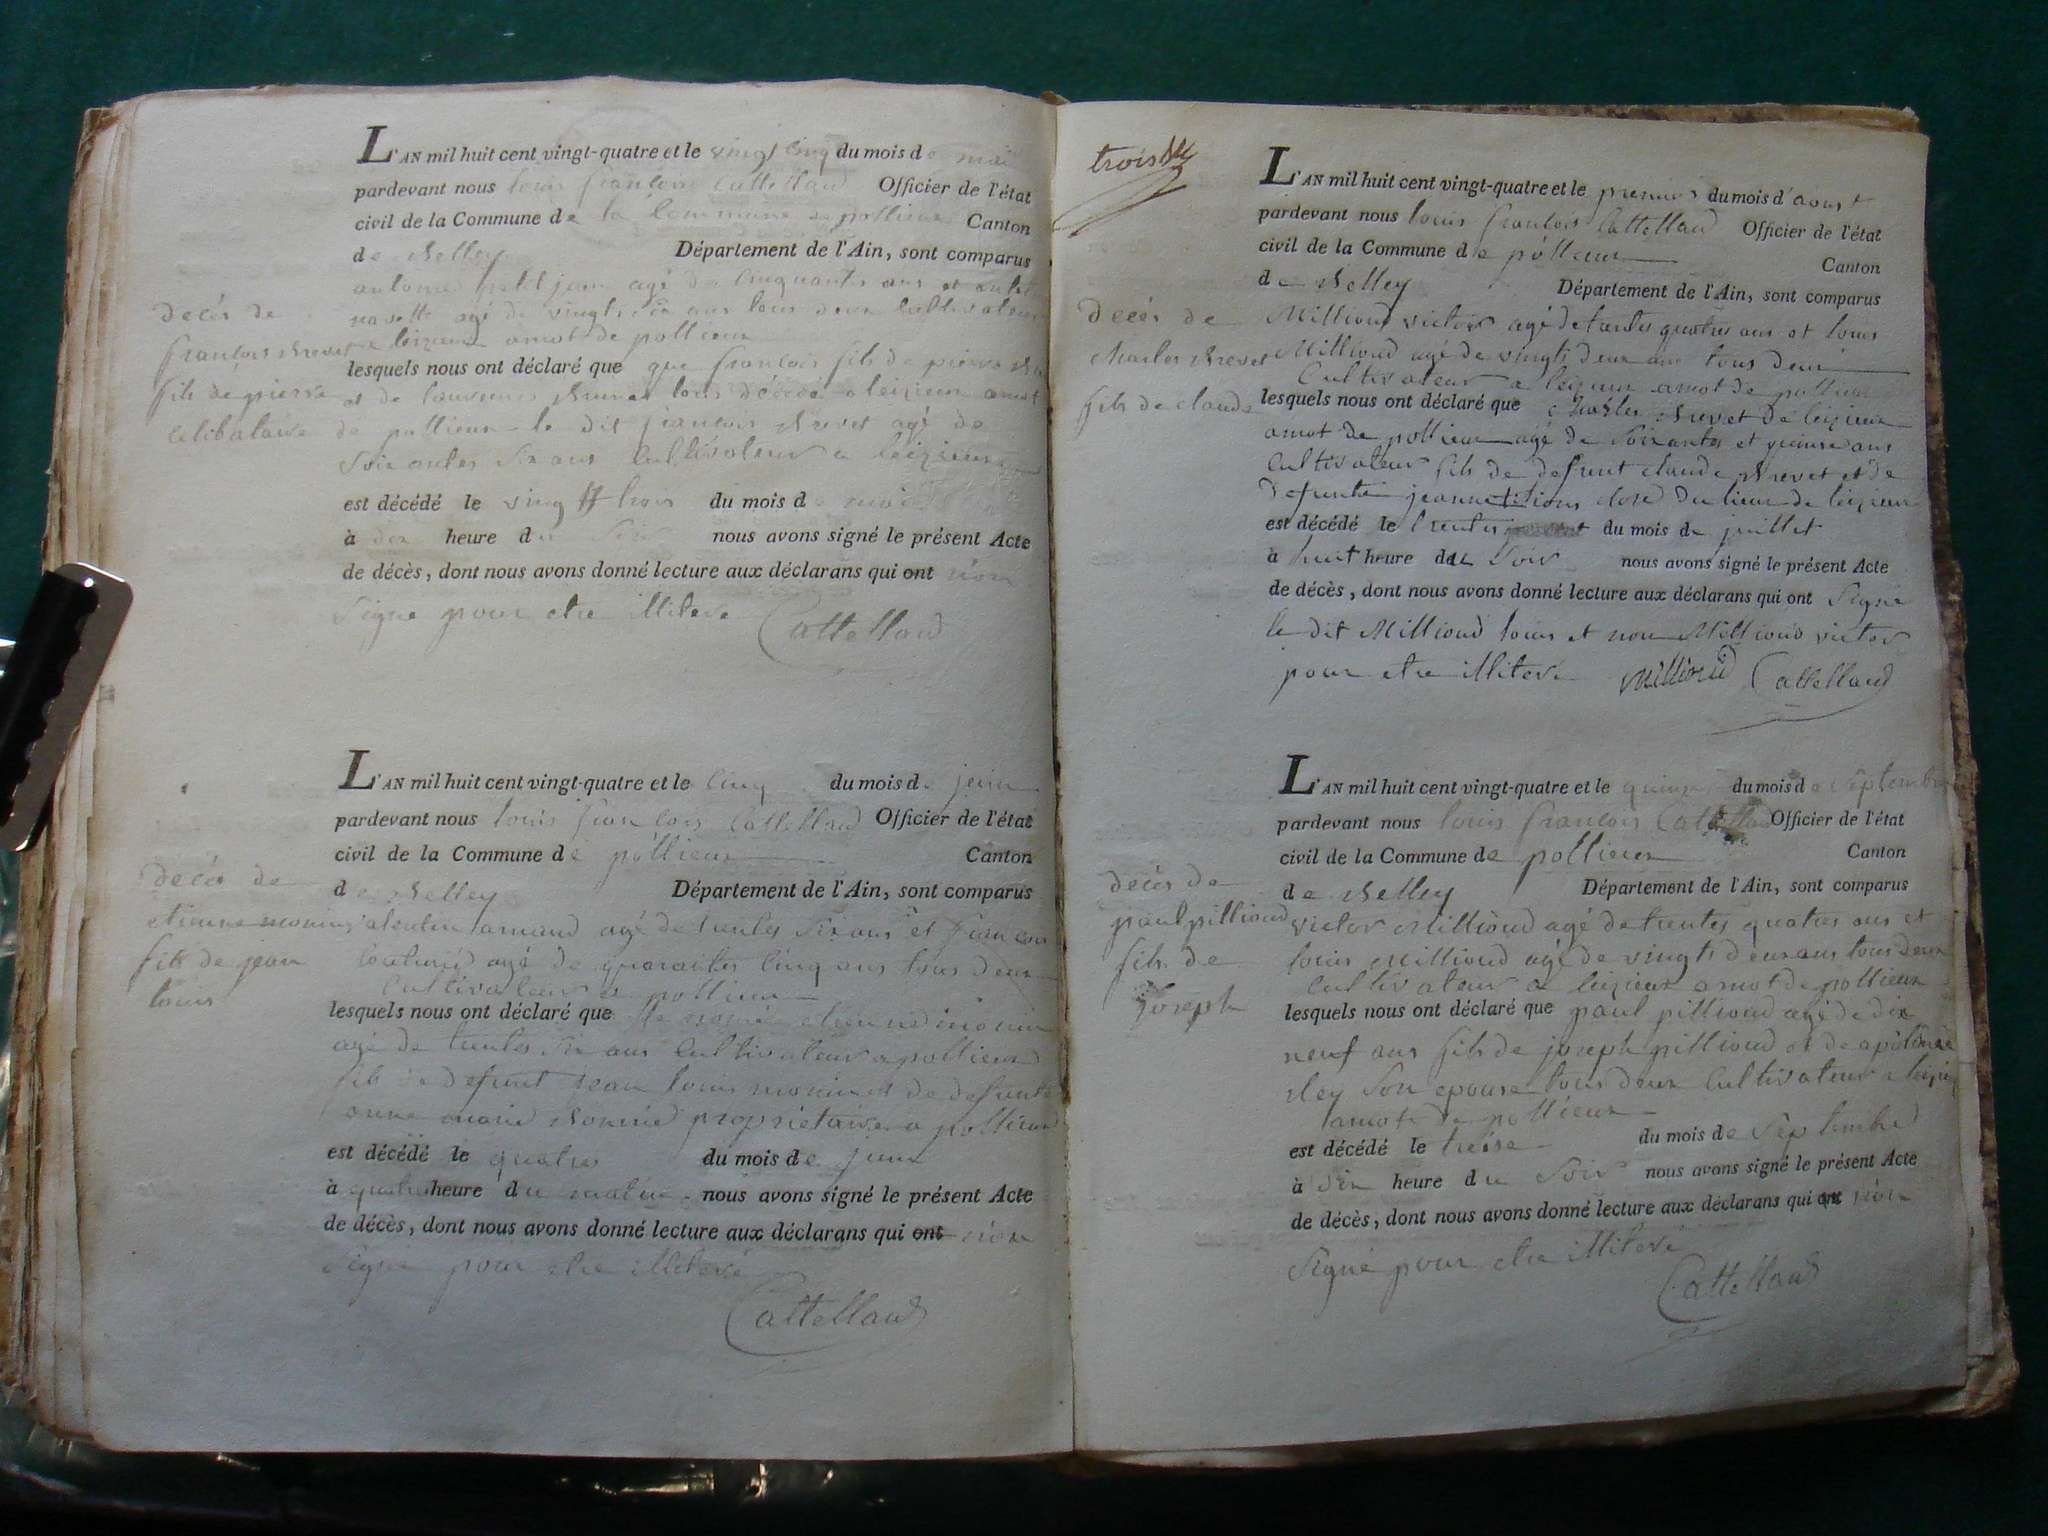 L'AN mil huit cent vingt-quatre et le vingt cinq du mois de mai
pardevant nous louis francois Cattelland Officier de l'état
civil de la Commune de la Commune de pollieux Canton
de Belley Département de l'Ain, sont comparus
antoine petit jean agé de cinquantes ans et
agé de vingts six ans tous deux Cultivateur
a leizieux amot de pollieux
lesquels nous ont déclaré que francois fils de pierre
et de décédé a leizieux amot
de pollieux le dit francois Brevet agé de
Soixantes Six ans Cultivateur a leizieux
est décédé le vingtt trois du mois de mai
à dix heure du Soir nous avons signé le présent Acte
de décès, dont nous avons donné lecture aux déclarans qui ont non
Signé pour etre illiteré Cattelland
décés de
francois Brevet
fils de pierre
celibataire
L'AN mil huit cent vingt-quatre et le cinq du mois de juin
pardevant nous louis francois Cattelland Officier de l'état
civil de la Commune de pollieux Canton
de Belley Département de l'Ain, sont comparus
agé de trentes Six ans et francois
agé de quaraites cinq ans tous deux
Cultivateur a pollieux
lesquels nous ont déclaré que le nomé etienne monin
agé de trentes Six ans Cultivateur a pollieux
fils de defunt jean louis monin et de defunte
anne marie propriétaire a pollieux
est décédé le quatres du mois de juin
à quatre heure du matin nous avons signé le présent Acte
de décès, dont nous avons donné lecture aux déclarans qui ont non
Signé pour etre illiteré
Cattelland
décés de
etienne monin
fils de jean
louis
trois
L'AN mil huit cent vingt-quatre et le premier du mois d'aoust
pardevant nous louis francois Cattelland Officier de l'état
civil de la Commune de pollieux Canton
de Belley Département de l'Ain, sont comparus
Millioud victor agé de trentes quatres ans et louis
Millioud agé de vingts deux ans tous deux
Cultivateur a leizieux amot de pollieux
lesquels nous ont déclaré que Charles Brevet de leizieux
amot de pollieux agé de Soixantes et quinze ans
Cultivateur fils de defunt claude Brevet et de
defunte jeanne du lieux de leizieux
est décédé le trentes du mois de juillet
à huit heure du Soir nous avons signé le présent Acte
de décès, dont nous avons donné lecture aux déclarans qui ont Signé
le dit Millioud louis et non Millioud victor
pour etre illiteré Millioud Cattelland
décés de
Charles Brevet
fils de claude
L'AN mil huit cent vingt-quatre et le quinze du mois de Septembre
pardevant nous louis francois Cattelland Officier de l'état
civil de la Commune de pollieux Canton
de Belley Département de l'Ain, sont comparus
victor Millioud agé de trentes quatres ans et
louis Millioud agé de vingts deux ans tous deux
Cultivateur a leizieux amot de pollieux
lesquels nous ont déclaré que paul pillioud agé de dix
neuf ans fils de joseph pillioud et de
Rey Son epouse tous deux Cultivateur a
amot de pollieux
est décédé le treise du mois de Septembre
à Six heure du Soir nous avons signé le présent Acte
de décès, dont nous avons donné lecture aux déclarans qui ont non
Signé pour etre illiteré
Cattelland
décés de
paul pillioud
fils de
joseph